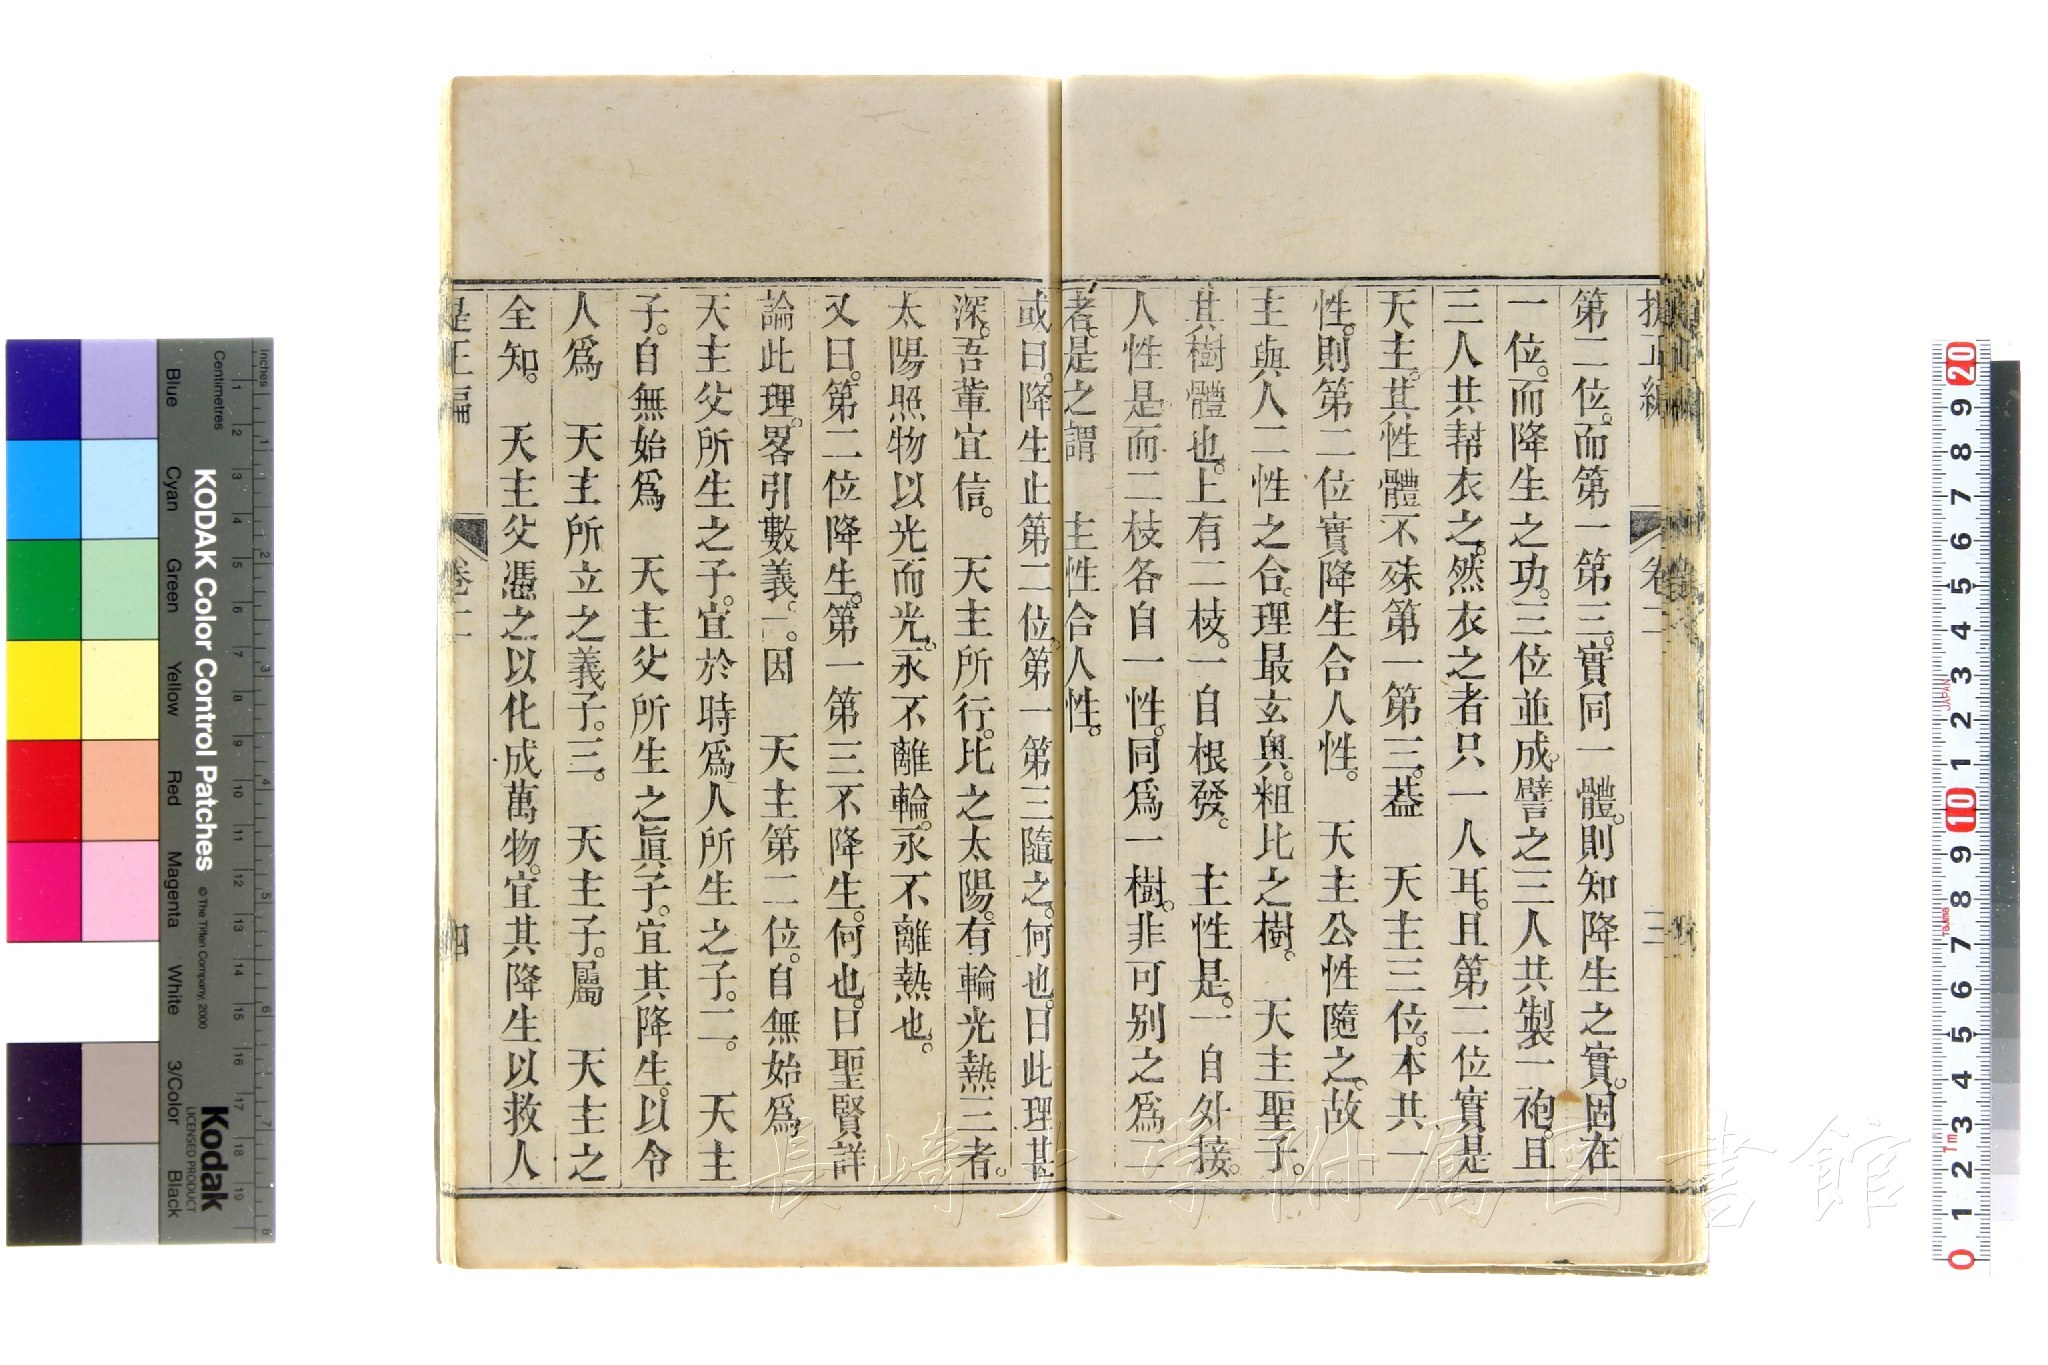 提正編
卷二
三
第二位。而第一第三。實同一體。則知降生之實。固在
一位。而降生之功。三位並成。譬之三人共製一袍。且
三人共幇衣之。然衣之者只一人耳。且第二位實是
天主。其性體不殊第一第三。葢　天主三位。本共一
性。則第二位實降生合人性。　天主公性隨之。故
主與人二性之合。理最玄奥。粗比之樹。　天主聖子。
其樹體也。上有二枝。一自根發。　主性是。一自外接。
人性是。而二枝各自一性。同爲一樹。非可別之爲二
者。是之謂　主性合人性。
或曰。降生止第二位。第一第三隨之。何也。曰此理甚
深。吾輩宜信。　天主所行。比之太陽。有輪光熱三者。
太陽照物以光而光。永不離輪。永不離熱也。
又曰。第二位降生。第一第三不降生。何也。曰聖賢詳
論此理。畧引數義。一。因　天主第二位。自無始爲
天主父所生之子。宜於時爲人所生之子。二。　天主
子。自無始爲　天主父所生之眞子。宜其降生。以令
人爲　天主所立之義子。三。　天主子。屬　天主之
全知。　天主父憑之以化成萬物。宜其降生以救人
是正編
卷二
四
長崎大学附属図書館
KODAK Color Control Patches
© The Tiffen Company, 2000
Kodak
LICENSED PRODUCT
Inches
Centimetres
Blue
Cyan
Green
Yellow
Red
Magenta
White
3/Color
Black
1 2 3 4 5 6 7 8 9 10 11 12 13 14 15 16 17 18 19
1 2 3 4 5 6 7 8
20 9 8 7 6 5 4 3 2 1 10 9 8 7 6 5 4 3 2 1 0
JAPAN